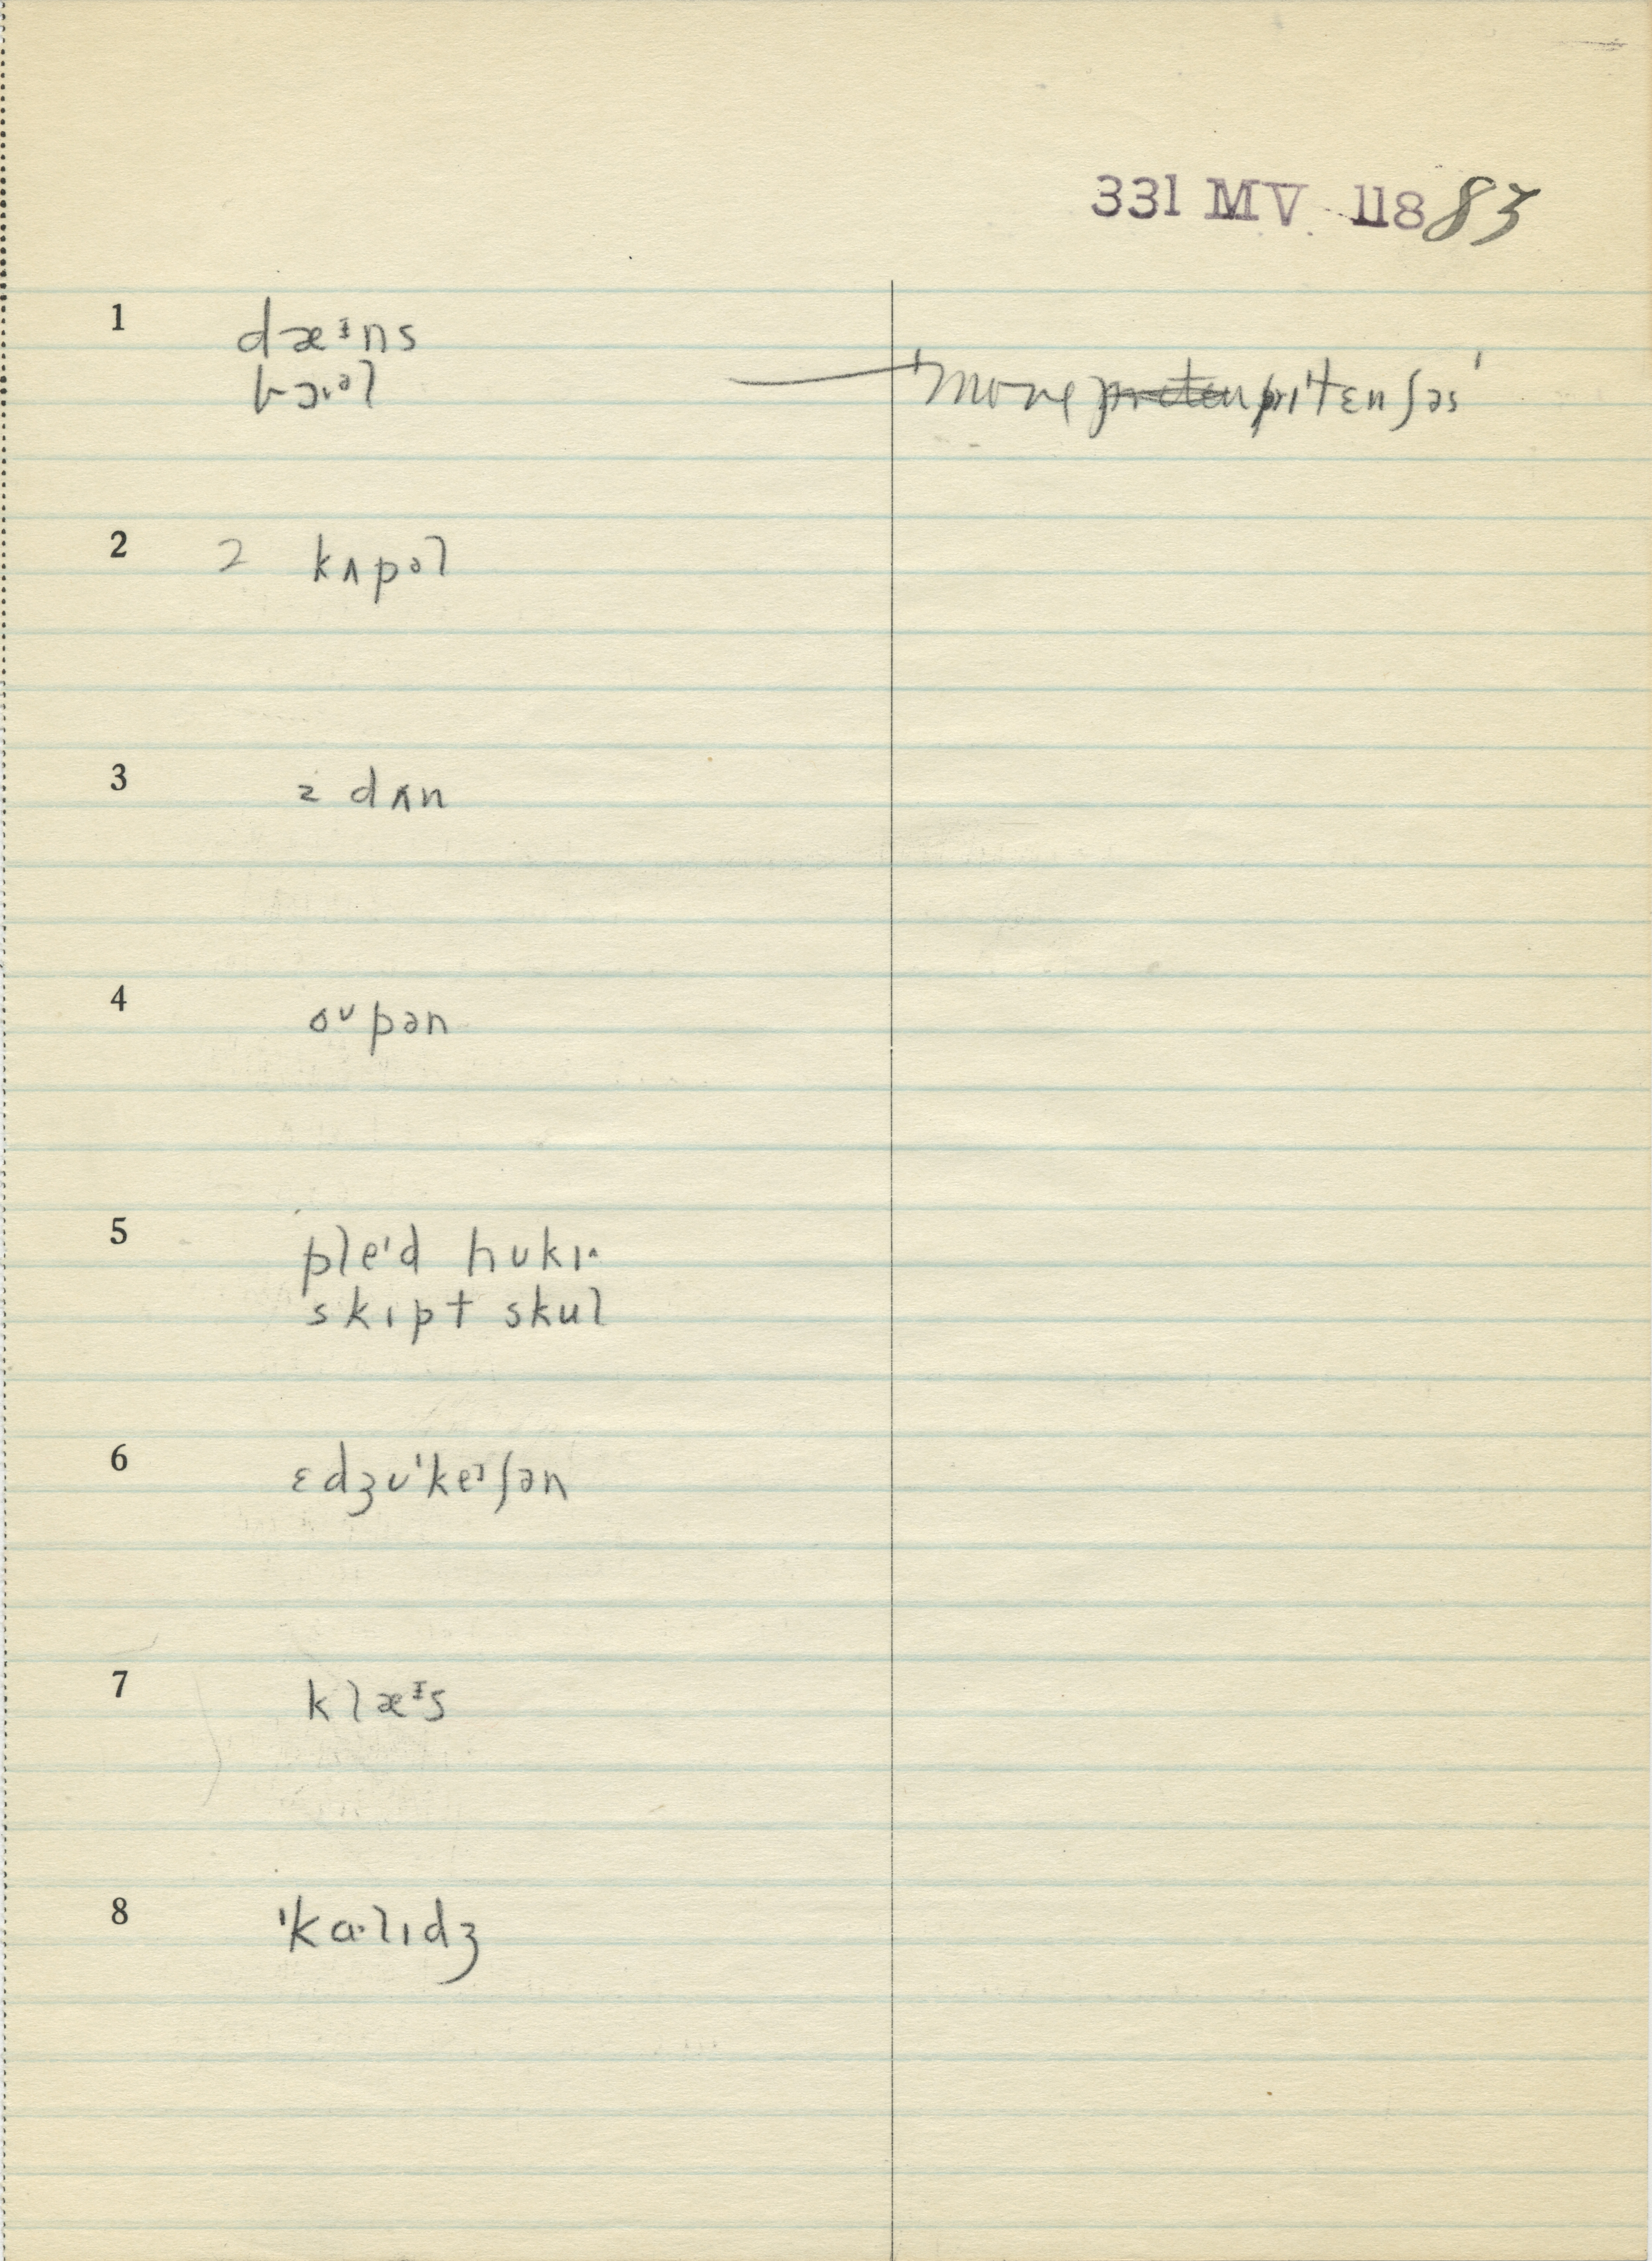 331 MV 118 83
1 dæᶤns
bɔ·əl 'more priˈtɛnʃəs'
2 2 kʌpəl
3 z dʌn
4 oᴜpən
5 pleˈd hʊkɪ·
skɪpt skul
6 ɛdʒʊˈkeᶦʃən
7 klæᶤs
8 ˈkɑ·lɪdʒ